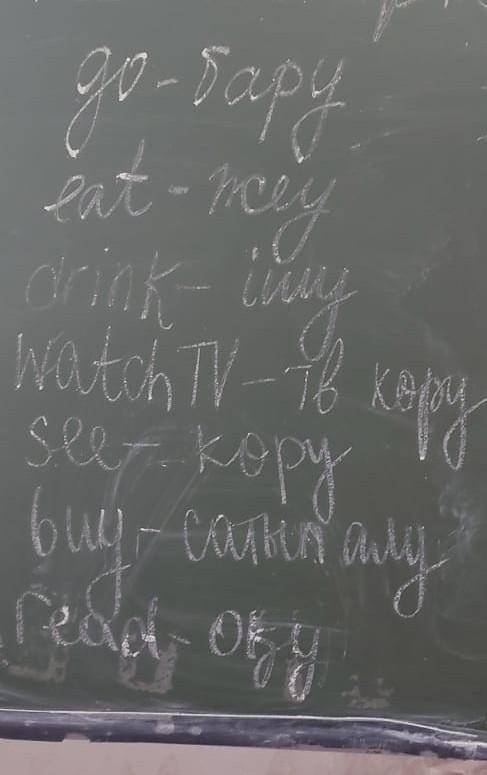 go - бару
eat - жеу
drink - ішу
watch TV - тв көру
see - көру
buy - сатып алу
read - оқу